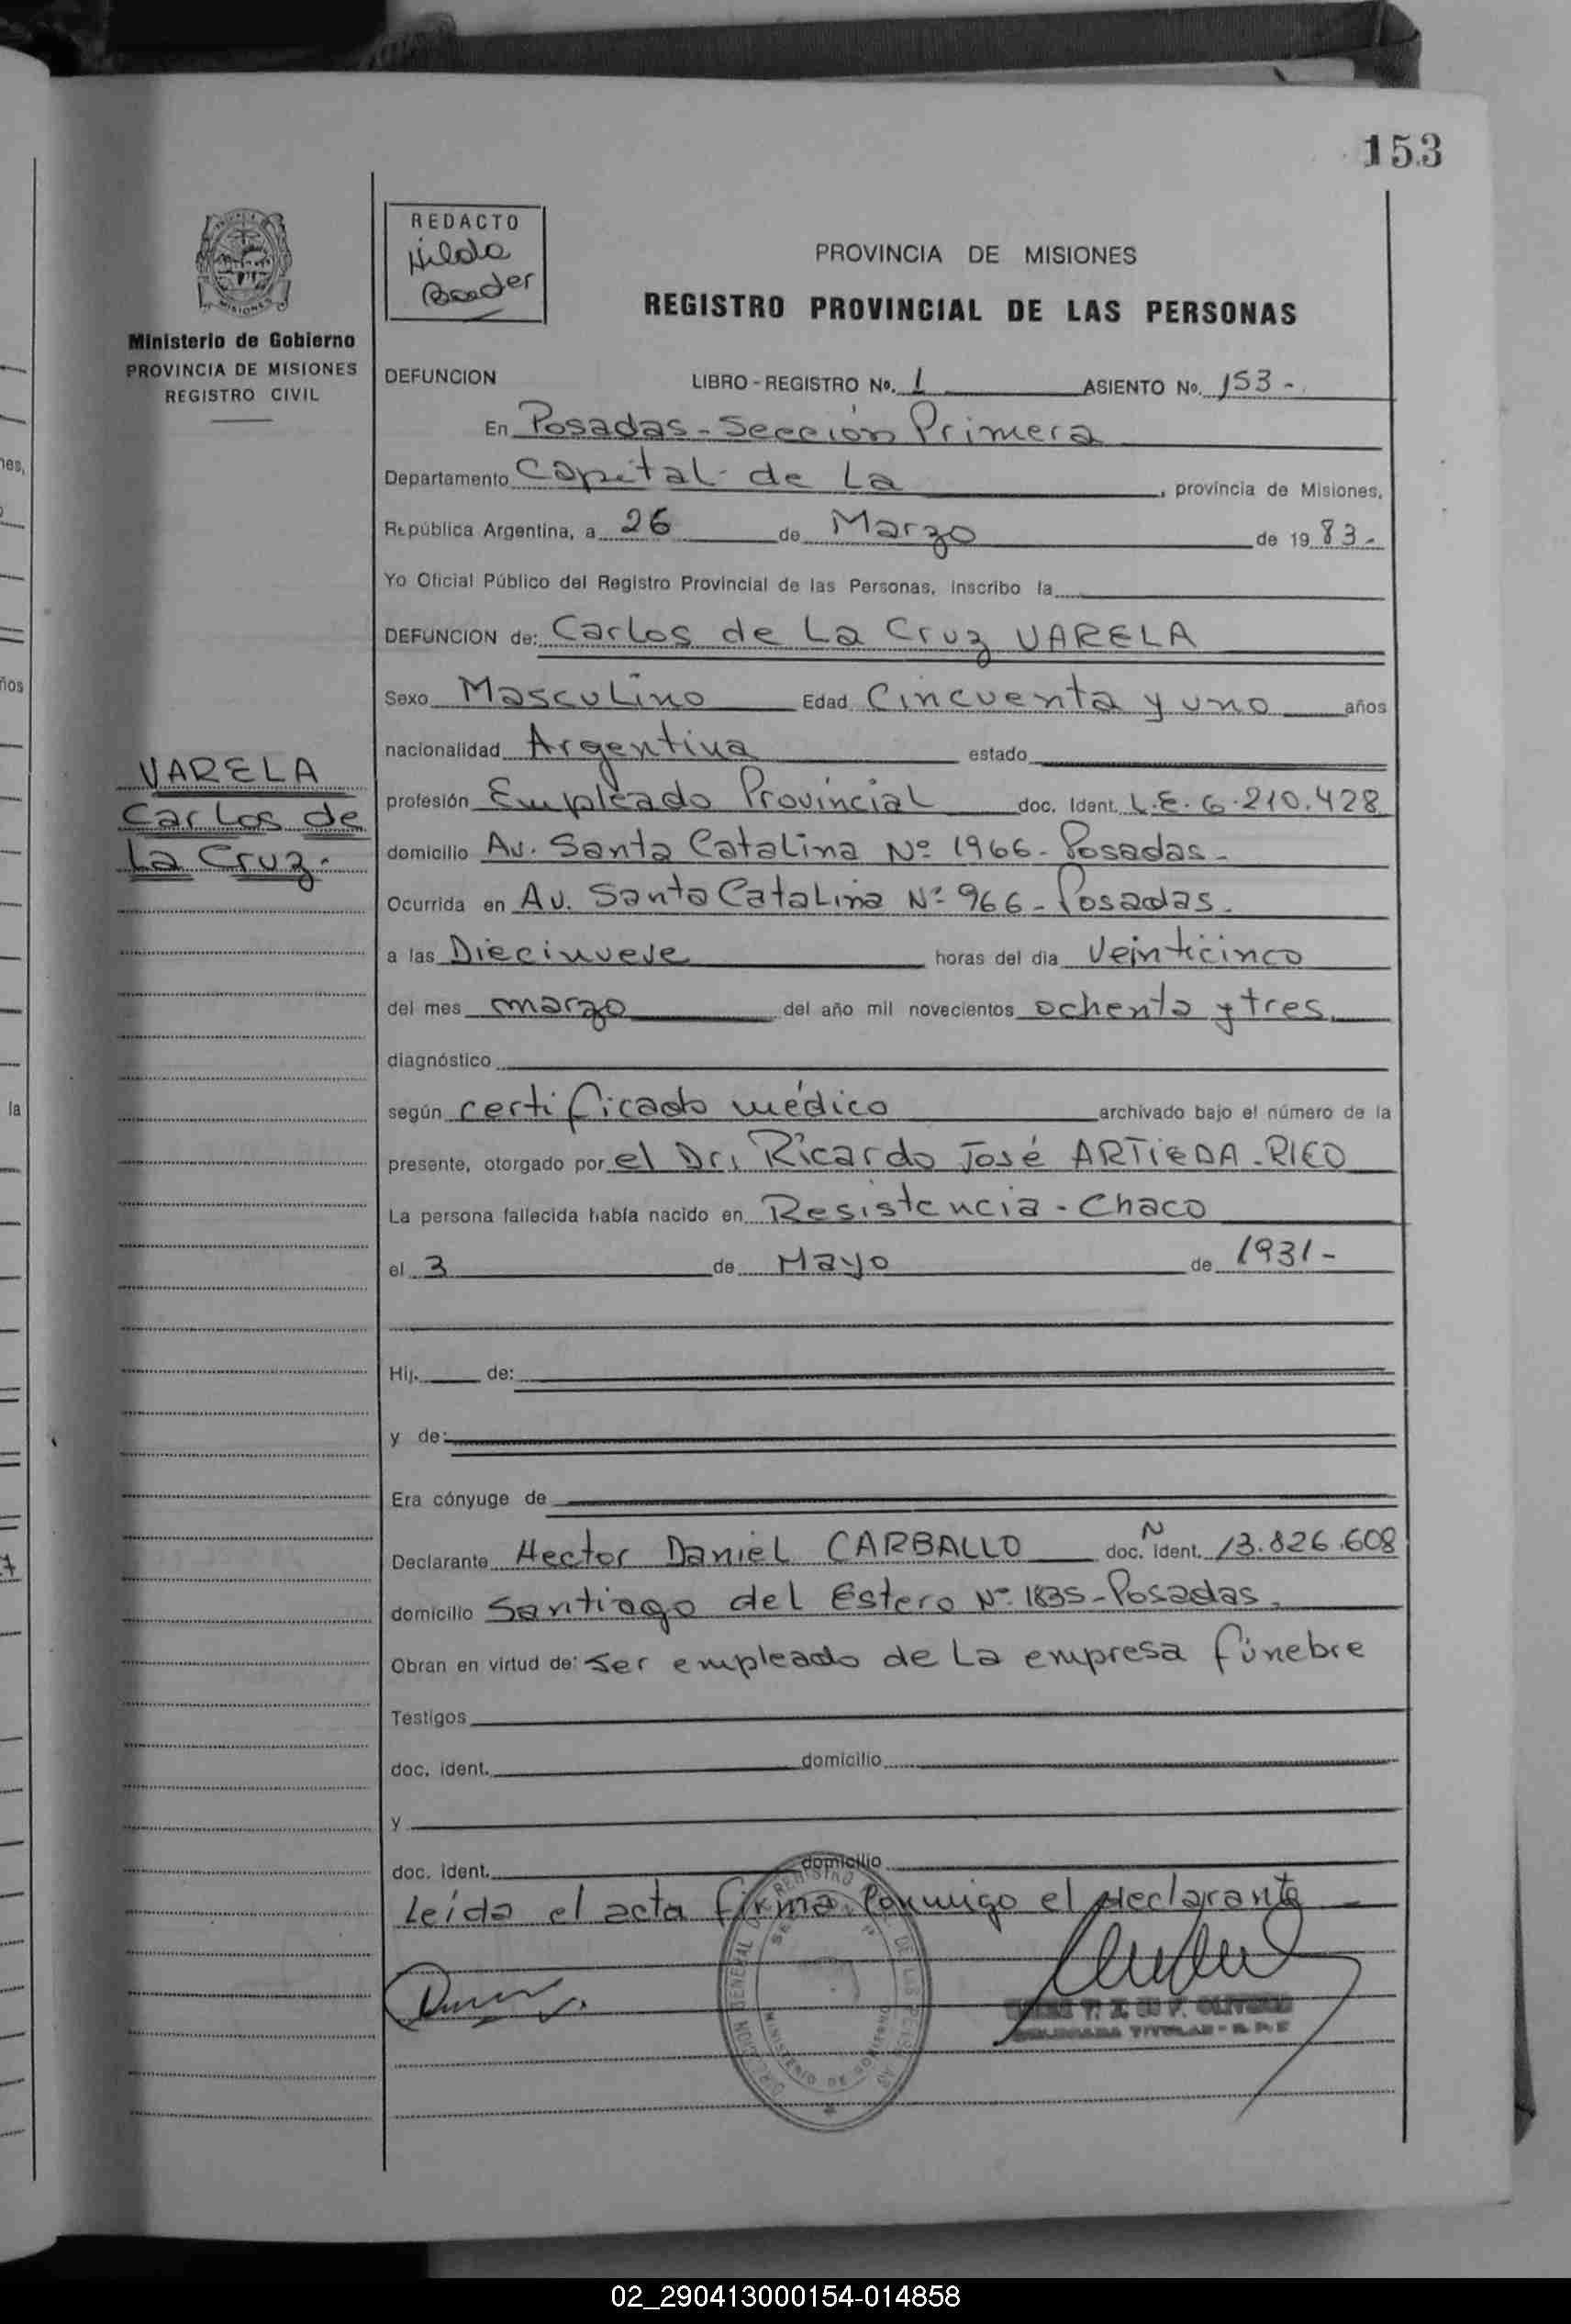 153
REDACTO
Hilda
Boader
PROVINCIA DE MISIONES
REGISTRO PROVINCIAL DE LAS PERSONAS
MISIONES
Ministerio de Gobierno
PROVINCIA DE MISIONES
REGISTRO CIVIL
DEFUNCION LIBRO - REGISTRO Nº. 1 ASIENTO No. 153 -
En Posadas - Sección Primera
Departamento Capital de La , provincia de Misiones,
República Argentina, a 26 de Marzo de 1983 -
Yo Oficial Público del Registro Provincial de las Personas, inscribo la
DEFUNCION de: Carlos de La Cruz VARELA
Sexo Masculino Edad Cincuenta y uno años
nacionalidad Argentina estado
VARELA
Carlos de
La Cruz.
profesión Empleado Provincial doc. Ident. L.E. 6.210.428
domicilio Av. Santa Catalina Nº 1966 - Posadas -
Ocurrida en Av. Santa Catalina Nº 966 - Posadas.
a las Diecinueve horas del dia Veinticinco
del mes marzo del año mil novecientos ochenta y tres.
diagnóstico
según certificado médico archivado bajo el número de la
presente, otorgado por el Dr. Ricardo José ARTIEDA - RICO
La persona fallecida había nacido en Resistencia - Chaco
el 3 de Mayo de 1931 -
Hij. de:
y de:
Era cónyuge de
Declarante Hector Daniel CARBALLO doc. Ident. N 13.826.608
domicilio Santiago del Estero Nº 1835 - Posadas.
Obran en virtud de: Ser empleado de La empresa fúnebre
Testigos
doc. ident. domicilio
y
doc. ident. domicilio
Leída el acta firma conmigo el declarante
02_290413000154-014858